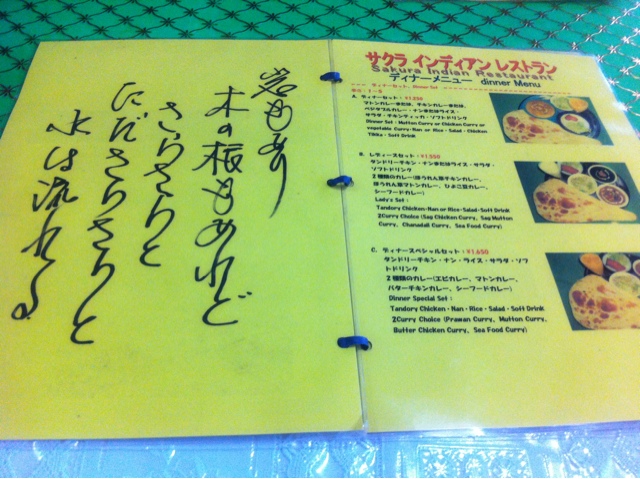 岩もあり
木の根もあれど
さらさらと
たださらさらと
水は流れる
サクラ インディアン レストラン
Sakura Indian Restaurant
ディナーメニュー dinner Menu
ディナーセット, Dinner Set
A. ディナーセット: ¥1,250
マトンカレーまたは、チキンカレーまたは、
ベジタブルカレー・ナンまたはライス・
サラダ・チキンティッカ・ソフトドリンク
Dinner Set : Mutton Curry or Chicken Curry or
vegetable Curry・Nan or Rice・Salad・Chicken
Tikka・Soft Drink
B. レディースセット: ¥1,550
タンドリーチキン・ナンまたはライス・サラダ・
ソフトドリンク
2種類のカレー(ほうれん草チキンカレー、
ほうれん草マトンカレー、ひよこ豆カレー、
シーフードカレー)
Lady's Set :
Tandory Chicken・Nan or Rice・Salad・Soft Drink
2Curry Choice (Sag Chicken Curry, Sag Mutton
Curry, Chanadall Curry, Sea Food Curry)
C. ディナースペシャルセット: ¥1,650
タンドリーチキン・ナン・ライス・サラダ・ソフ
トドリンク
2種類のカレー(エビカレー、マトンカレー、
バターチキンカレー、シーフードカレー)
Dinner Special Set :
Tandory Chicken・Nan・Rice・Salad・Soft Drink
2Curry Choice (Prawan Curry, Mutton Curry,
Butter Chicken Curry, Sea Food Curry)